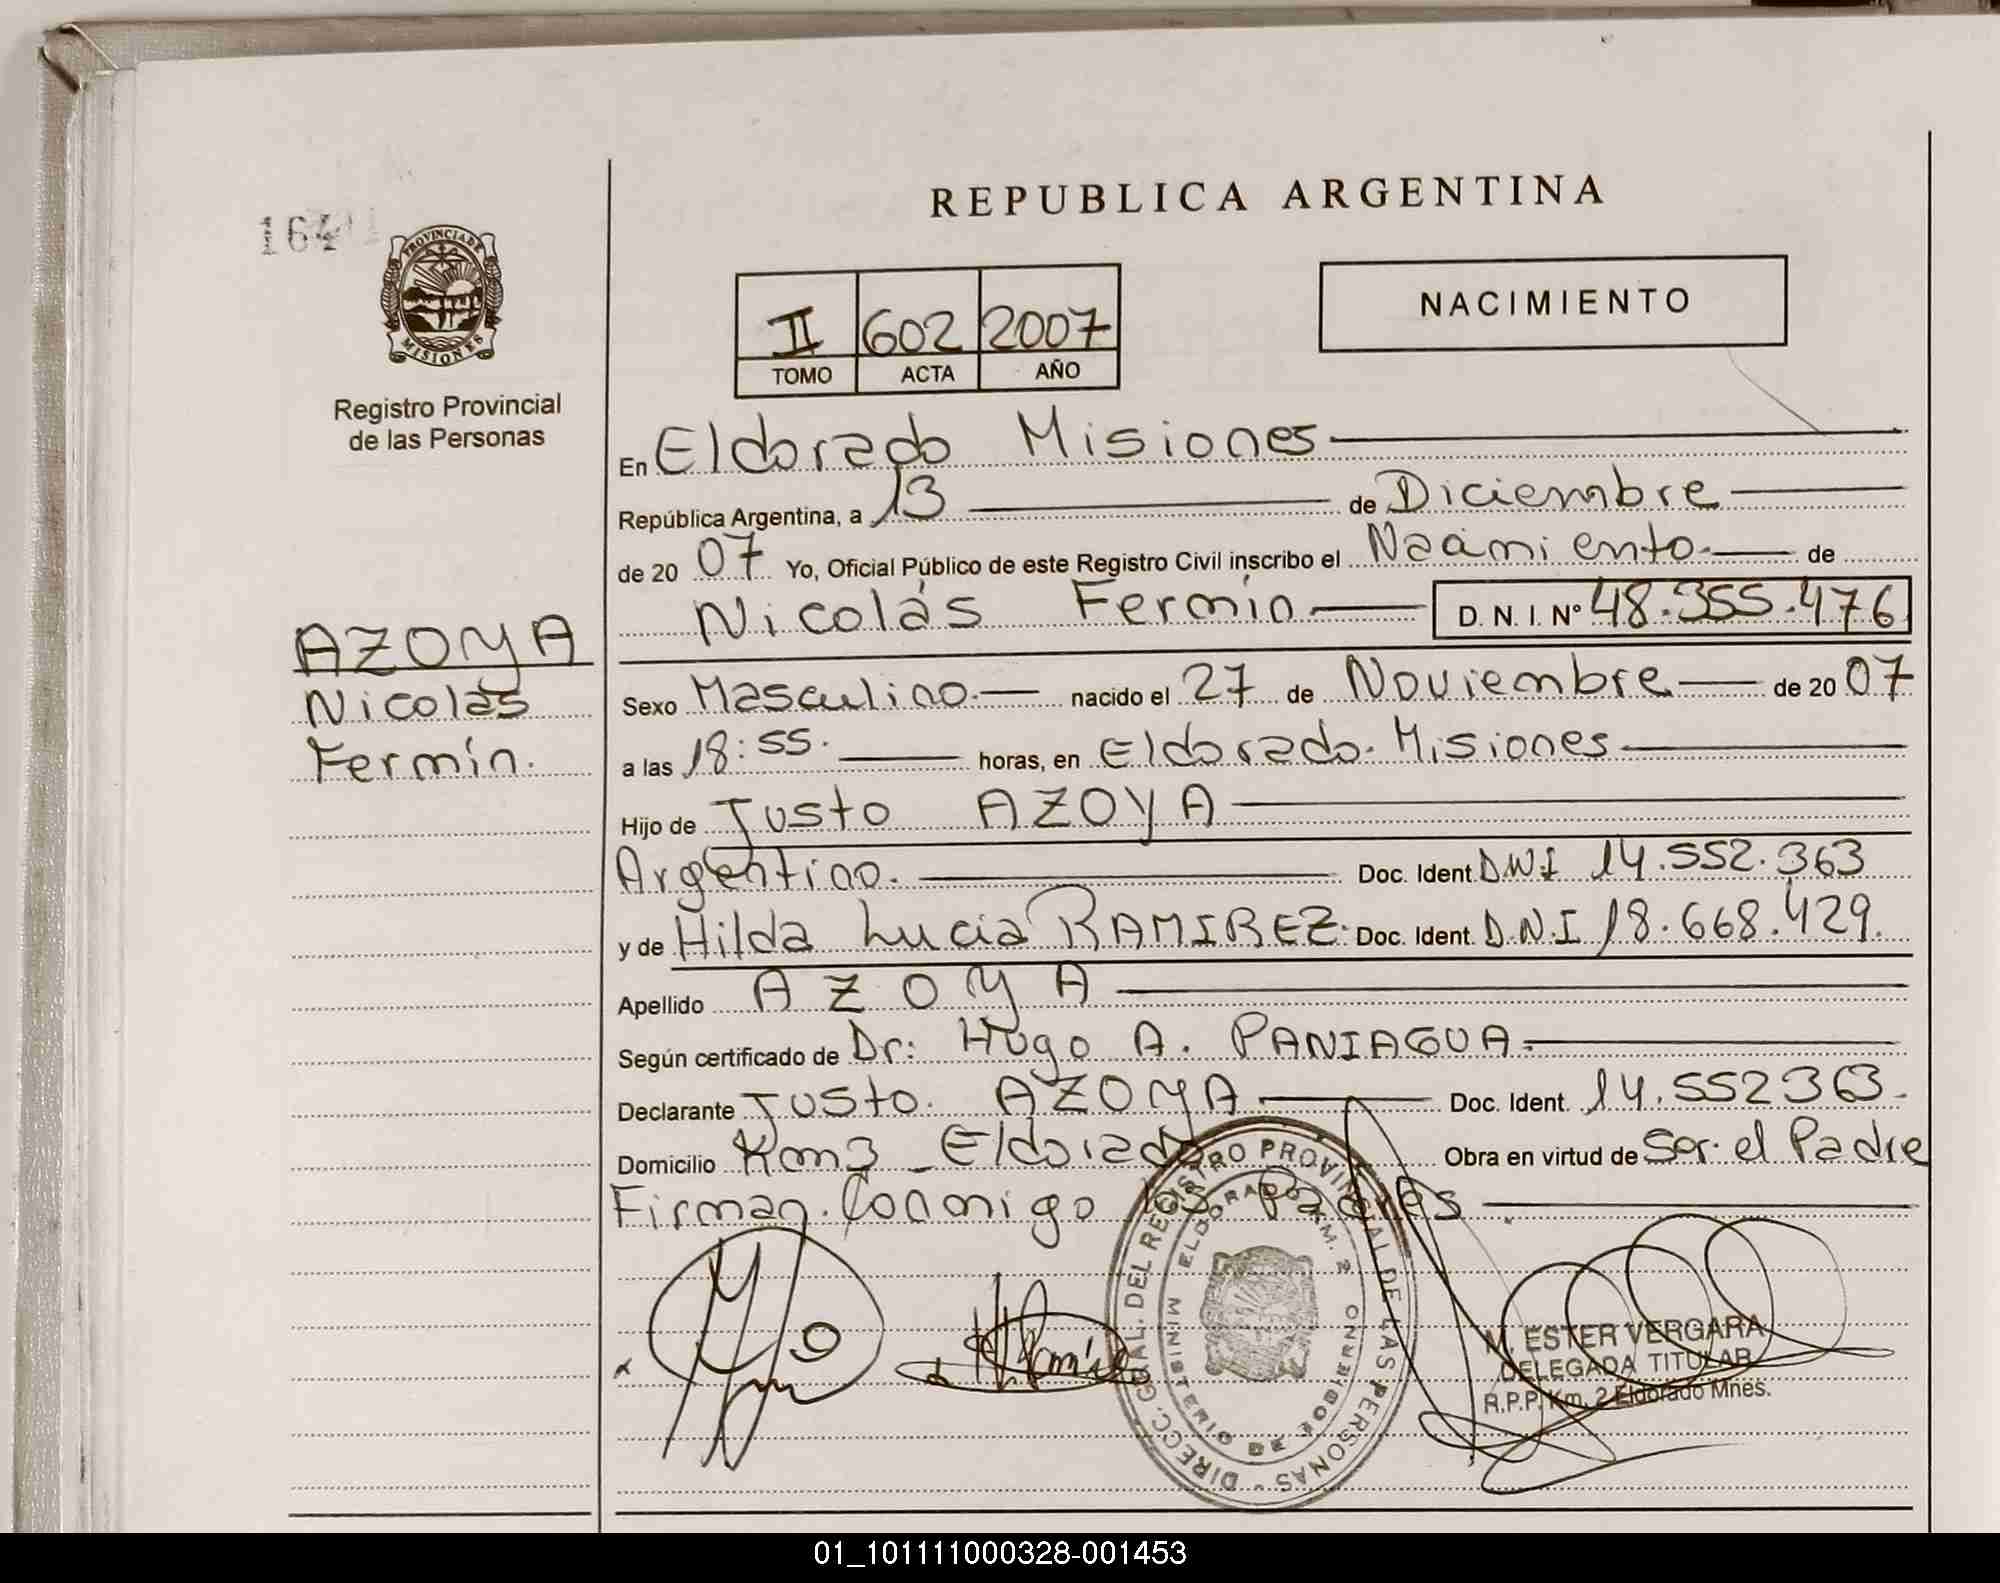 164
PROVINCIA DE
MISIONES
Registro Provincial
de las Personas
AZOYA
Nicolás
Fermín.
REPUBLICA ARGENTINA
II 602 2007
TOMO ACTA AÑO
NACIMIENTO
En Eldorado Misiones
República Argentina, a 13 de Diciembre
de 20 07 Yo, Oficial Público de este Registro Civil inscribo el Nacimiento. de
Nicolás Fermín D. N. I. Nº 48.355.476
Sexo Masculino. nacido el 27 de Noviembre de 20 07
a las 18:55. horas, en Eldorado. Misiones
Hijo de Justo AZOYA
Argentino. Doc. Ident. DNI 14.552.363
y de Hilda Lucia RAMIREZ. Doc. Ident. D.N.I 18.668.429.
Apellido AZOYA
Según certificado de Dr: Hugo A. PANIAGUA.
Declarante Justo. AZOYA Doc. Ident. 14.552363.
Domicilio Km 3 _ Eldorado Obra en virtud de Ser el Padre
Firman Conmigo los Padres
DIRECC. GRAL. DEL REGISTRO PROVINCIAL DE LAS PERSONAS -
ELDORADO KM. 2
MINISTERIO DE GOBIERNO
M. ESTER VERGARA
DELEGADA TITULAR
R.P.P. Km. 2 Eldorado Mnes.
01_101111000328-001453